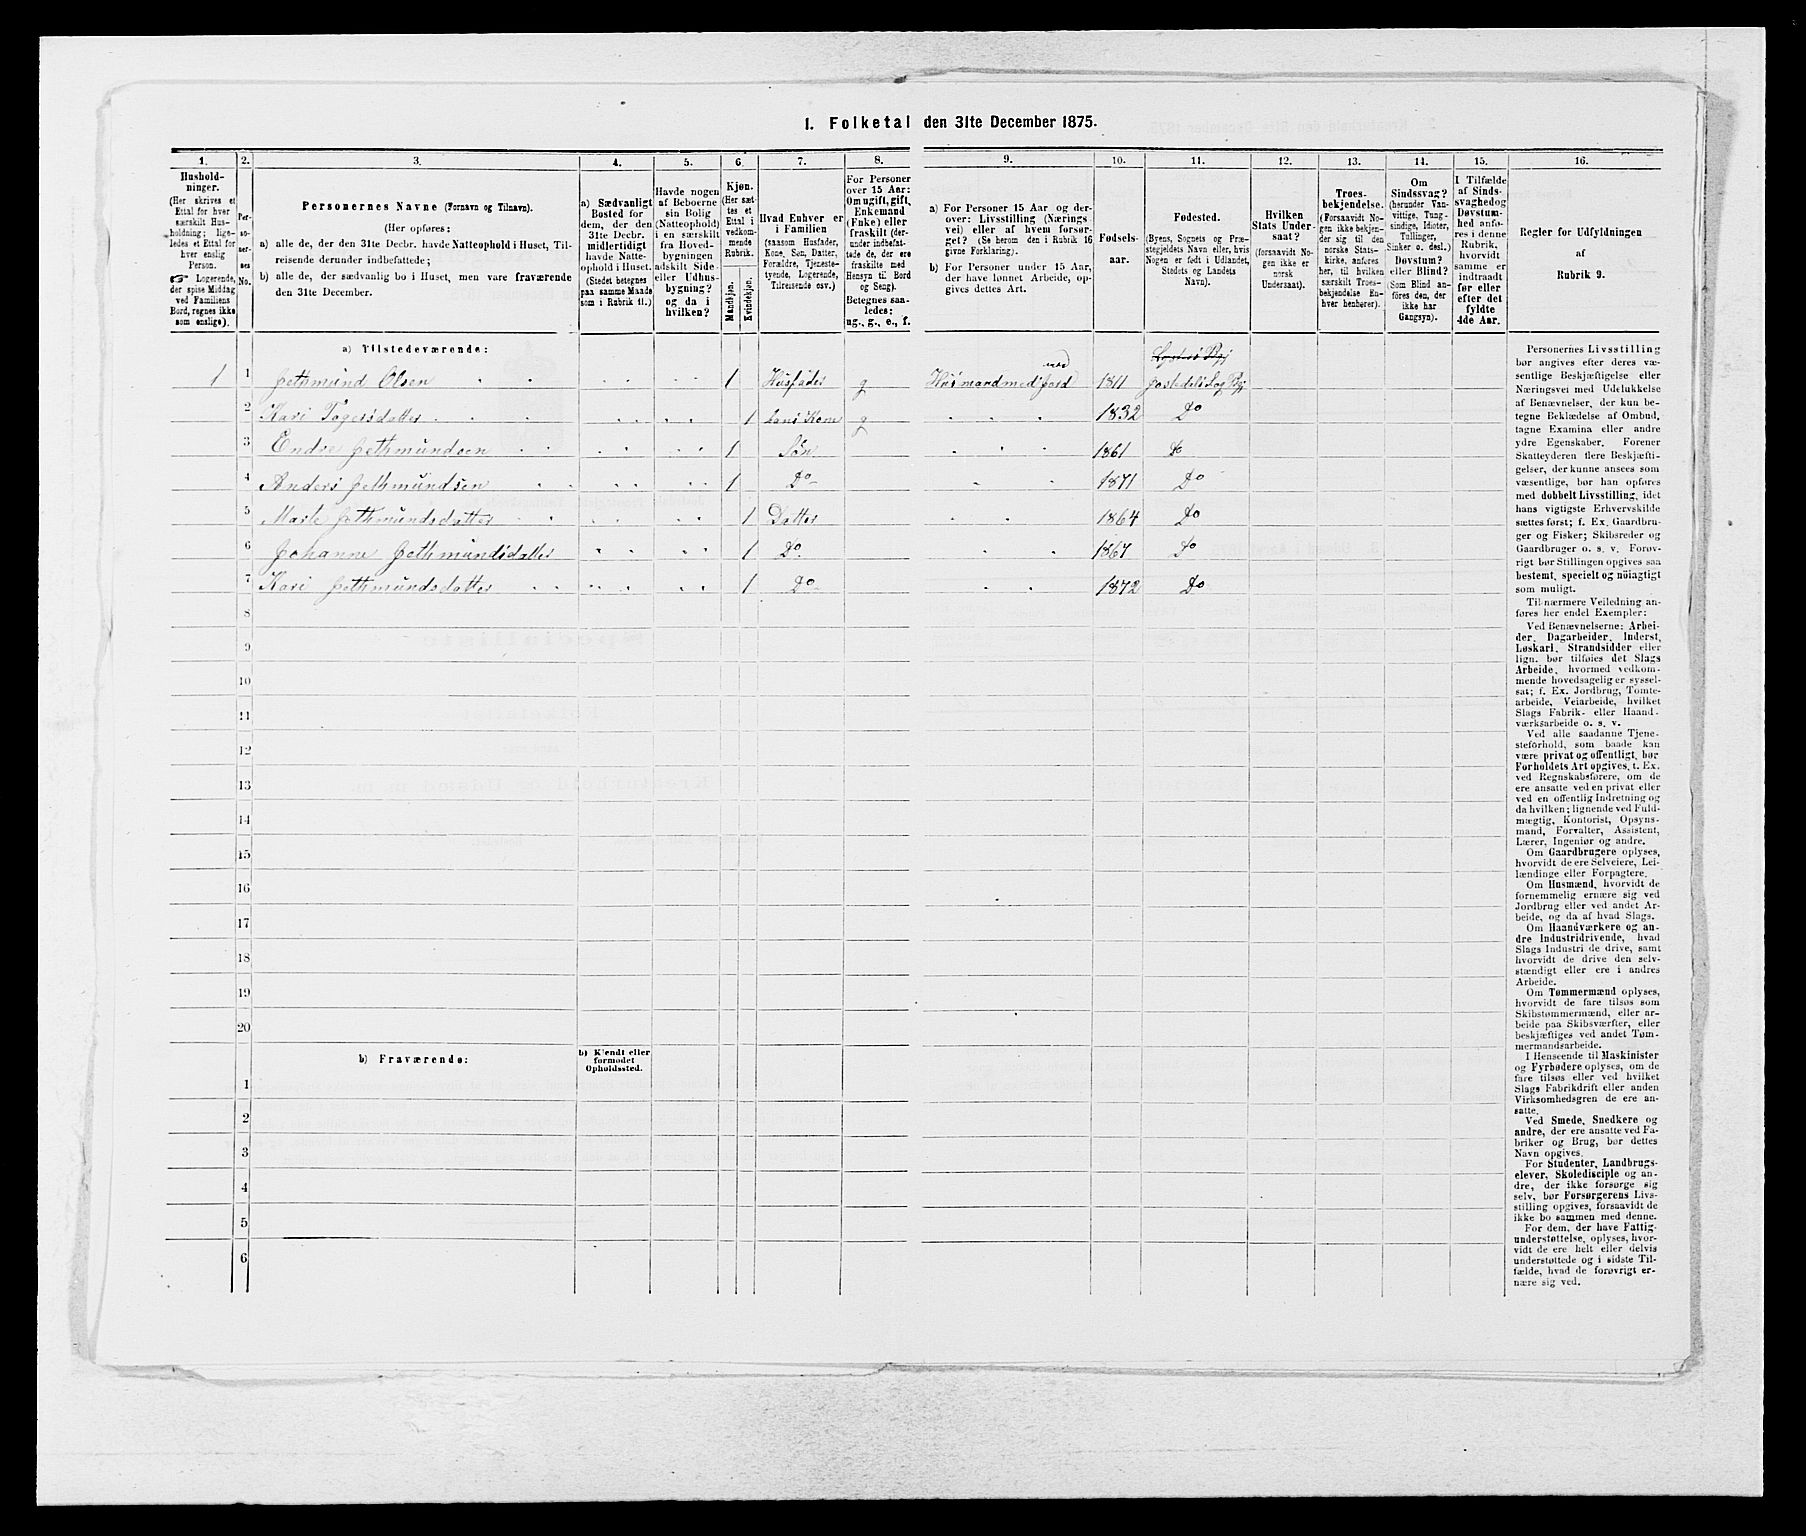 1. Folketal den 31te December 1875.
1. 2. 3. 4. 5. 6. 7. 8. 9. 10. 11. 12. 13. 14. 15. 16.
Hushold-
ninger.
(Her skrives et
Ettal for hver
særskilt Hus-
holdning; lige-
ledes et Ettal for
hver enslig
Person.
Logerende,
der spise Middag
ved Familiens
Bord, regnes ikke
som enslige).
Per-
so-
ner-
nes
No.
Personernes Navne (Fornavn og Tilnavn).
(Her opføres:
a) alle de, der den 31te Decbr. havde Natteophold i Huset, Til-
reisende derunder indbefattede;
b) alle de, der sædvanlig bo i Huset, men vare fraværende
den 31te December.
a) Sædvanligt
Bosted for
dem, der den
31te Decbr.
midlertidigt
havde Natte-
ophold i Huset.
(Stedet betegnes
paa samme Maade
som i Rubrik 11.)
Havde nogen
af Beboerne
sin Bolig
(Natteophold)
i en særskilt
fra Hoved-
bygningen
adskilt Side-
eller Udhus-
bygning?
og da i
hvilken?
Kjøn.
(Her sæt-
tes et
Ettal i
vedkom-
mende
Rubrik.
Mandkjøn.
Kvindekjøn.
Hvad Enhver er
i Familien
(saasom Husfader,
Kone, Søn, Datter,
Forældre, Tjeneste-
tyende, Logerende,
Tilreisende osv.)
For Personer
over 15 Aar:
Om ugift, gift,
Enkemand
(Enke) eller
fraskilt (der-
under indbefat-
tede de, der ere
fraskilte med
Hensyn til Bord
og Seng).
Betegnes saa-
ledes:
ug., g., e., f.
a) For Personer 15 Aar og der-
over: Livsstilling (Nærings-
vei) eller af hvem forsør-
get? (Se herom den i Rubrik 16
givne Forklaring).
b) For Personer under 15 Aar,
der have lønnet Arbeide, op-
gives dettes Art.
Fødsels-
aar.
Fødested.
(Byens, Sognets og Præ-
stegjeldets Navn eller, hvis
Nogen er født i Udlandet,
Stedets og Landets
Navn).
Hvilken
Stats Under-
saat?
(forsaavidt No-
gen ikke er
norsk
Undersaat).
Troes-
bekjendelse.
(Forsaavidt No-
gen ikke bekjen-
der sig til den
norske Stats-
kirke, anføres
her, til hvilken
særskilt Troes-
bekjendelse En-
hver henhører).
Om
Sindssvag?
(herunder Van-
vittige, Tung-
sindige, Idioter,
Tullinger,
Sinker o. desl.)
Døvstum?
eller Blind?
(Som Blind an-
føres den, der
ikke har
Gangsyn).
I Tilfælde
af Sinds-
svaghed og
Døvstum-
hed anfø-
res i denne
Rubrik,
hvorvidt
samme er
indtraadt
før eller
efter det
fyldte
4de Aar.
Regler for Udfyldningen
af
Rubrik 9.
a) Tilstedeværende:
1 1 Jethmund Olsen 1 Husfader g Husmand med jord 1811 Jostedals Sog Pgj
2 Kari Togersdatter 1 hans Kone g 1832 Do
3 Endre Jethmundsen 1 Søn 1861 Do
4 Anders Jethmundsen 1 Do 1871 Do
5 Marte Jethmundsdatter 1 Datter 1864 Do
6 Johanne Jethmundsdatter 1 Do 1867 Do
7 Kari Jethmundsdatter 1 Do 1872 Do
8
9
10
11
12
13
14
15
16
17
18
19
20
b) Fraværende:
b) Kjendt eller
formodet
Opholdssted.
1
2
3
4
5
6
Personernes Livsstilling
bør angives efter deres væ-
sentlige Beskjæftigelse eller
Næringsvei med Udelukkelse
af Benævnelser, der kun be-
tegne Beklædelse af Ombud,
tagne Examina eller andre
ydre Egenskaber. Forener
Skatteyderen flere Beskjæfti-
gelser, der kunne ansees som
væsentlige, bør han opføres
med dobbelt Livsstilling, idet
hans vigtigste Erhvervskilde
sættes først; f. Ex. Gaardbru-
ger og Fisker; Skibsreder og
Gaardbruger o. s. v. Forøv-
rigt bør Stillingen opgives saa
bestemt, specielt og nöiagtigt
som muligt.
Til nærmere Veiledning an-
føres her endel Exempler:
Ved Benævnelserne: Arbei-
der, Dagarbeider, Inderst,
Løskarl, Strandsidder eller
lign. bør tilføies det Slags
Arbeide, hvormed vedkom-
mende hovedsagelig er syssel-
sat; f. Ex. Jordbrug, Tomte-
arbeide, Veiarbeide, hvilket
Slags Fabrik- eller Haand-
værksarbeide o. s. v.
Ved alle saadanne Tjene-
steforhold, som baade kan
være privat og offentligt, bør
Forholdets Art opgives, t. Ex.
ved Regnskabsførere, om de
ere ansatte ved en privat eller
ved en offentlig Indretning og
da hvilken; lignende ved Fuld-
mægtig, Kontorist, Opsyns-
mand, Forvalter, Assistent,
Lærer, Ingeniør og andre.
Om Gaardbrugere oplyses,
hvorvidt de ere Selveiere, Lei-
lændinge eller Forpagtere.
Om Husmænd, hvorvidt de
fornemmelig ernære sig ved
Jordbrug eller ved andet Ar-
beide, og da af hvad Slags.
Om Haandværkere og an-
dre Industridrivende, hvad
Slags Industri de drive, samt
hvorvidt de drive den selv-
stændigt eller ere i andres
Arbeide.
Om Tømmermænd oplyses,
hvorvidt de fare tilsøs som
Skibstømmermænd, eller ar-
beide paa Skibsværfter, eller
beskjæftiges ved andet Tøm-
mermandsarbeide.
I Henseende til Maskinister
og Fyrbødere oplyses, om de
fare tilsøs eller ved hvilket
Slags Fabrikdrift eller anden
Virksomhedsgren de ere an-
satte.
Ved Smede, Snedkere og
andre, der ere ansatte ved Fa-
briker og Brug, bør dettes
Navn opgives.
For Studenter, Landbrugs-
elever, Skoledisciple og an-
dre, der ikke forsørge sig
selv, bør Forsørgerens Livs-
stilling opgives, forsaavidt de
ikke bo sammen med denne.
For dem, der have Fattig-
understøttelse, oplyses, hvor-
vidt de ere helt eller delvis
understøttede og i sidste Til-
fælde, hvad de forøvrigt er-
nære sig ved.